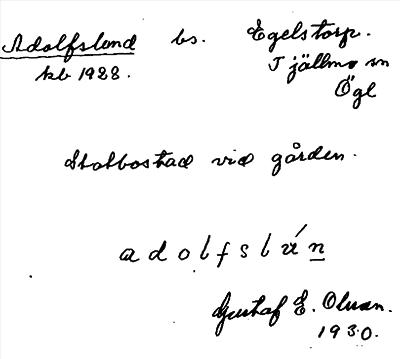 Adolfslund bs. Egelstorp.
kb 1928. Tjällmo sn
Ögl
Statbostad vid gården.
adolfslún
Gustaf E. Olsson.
1930.